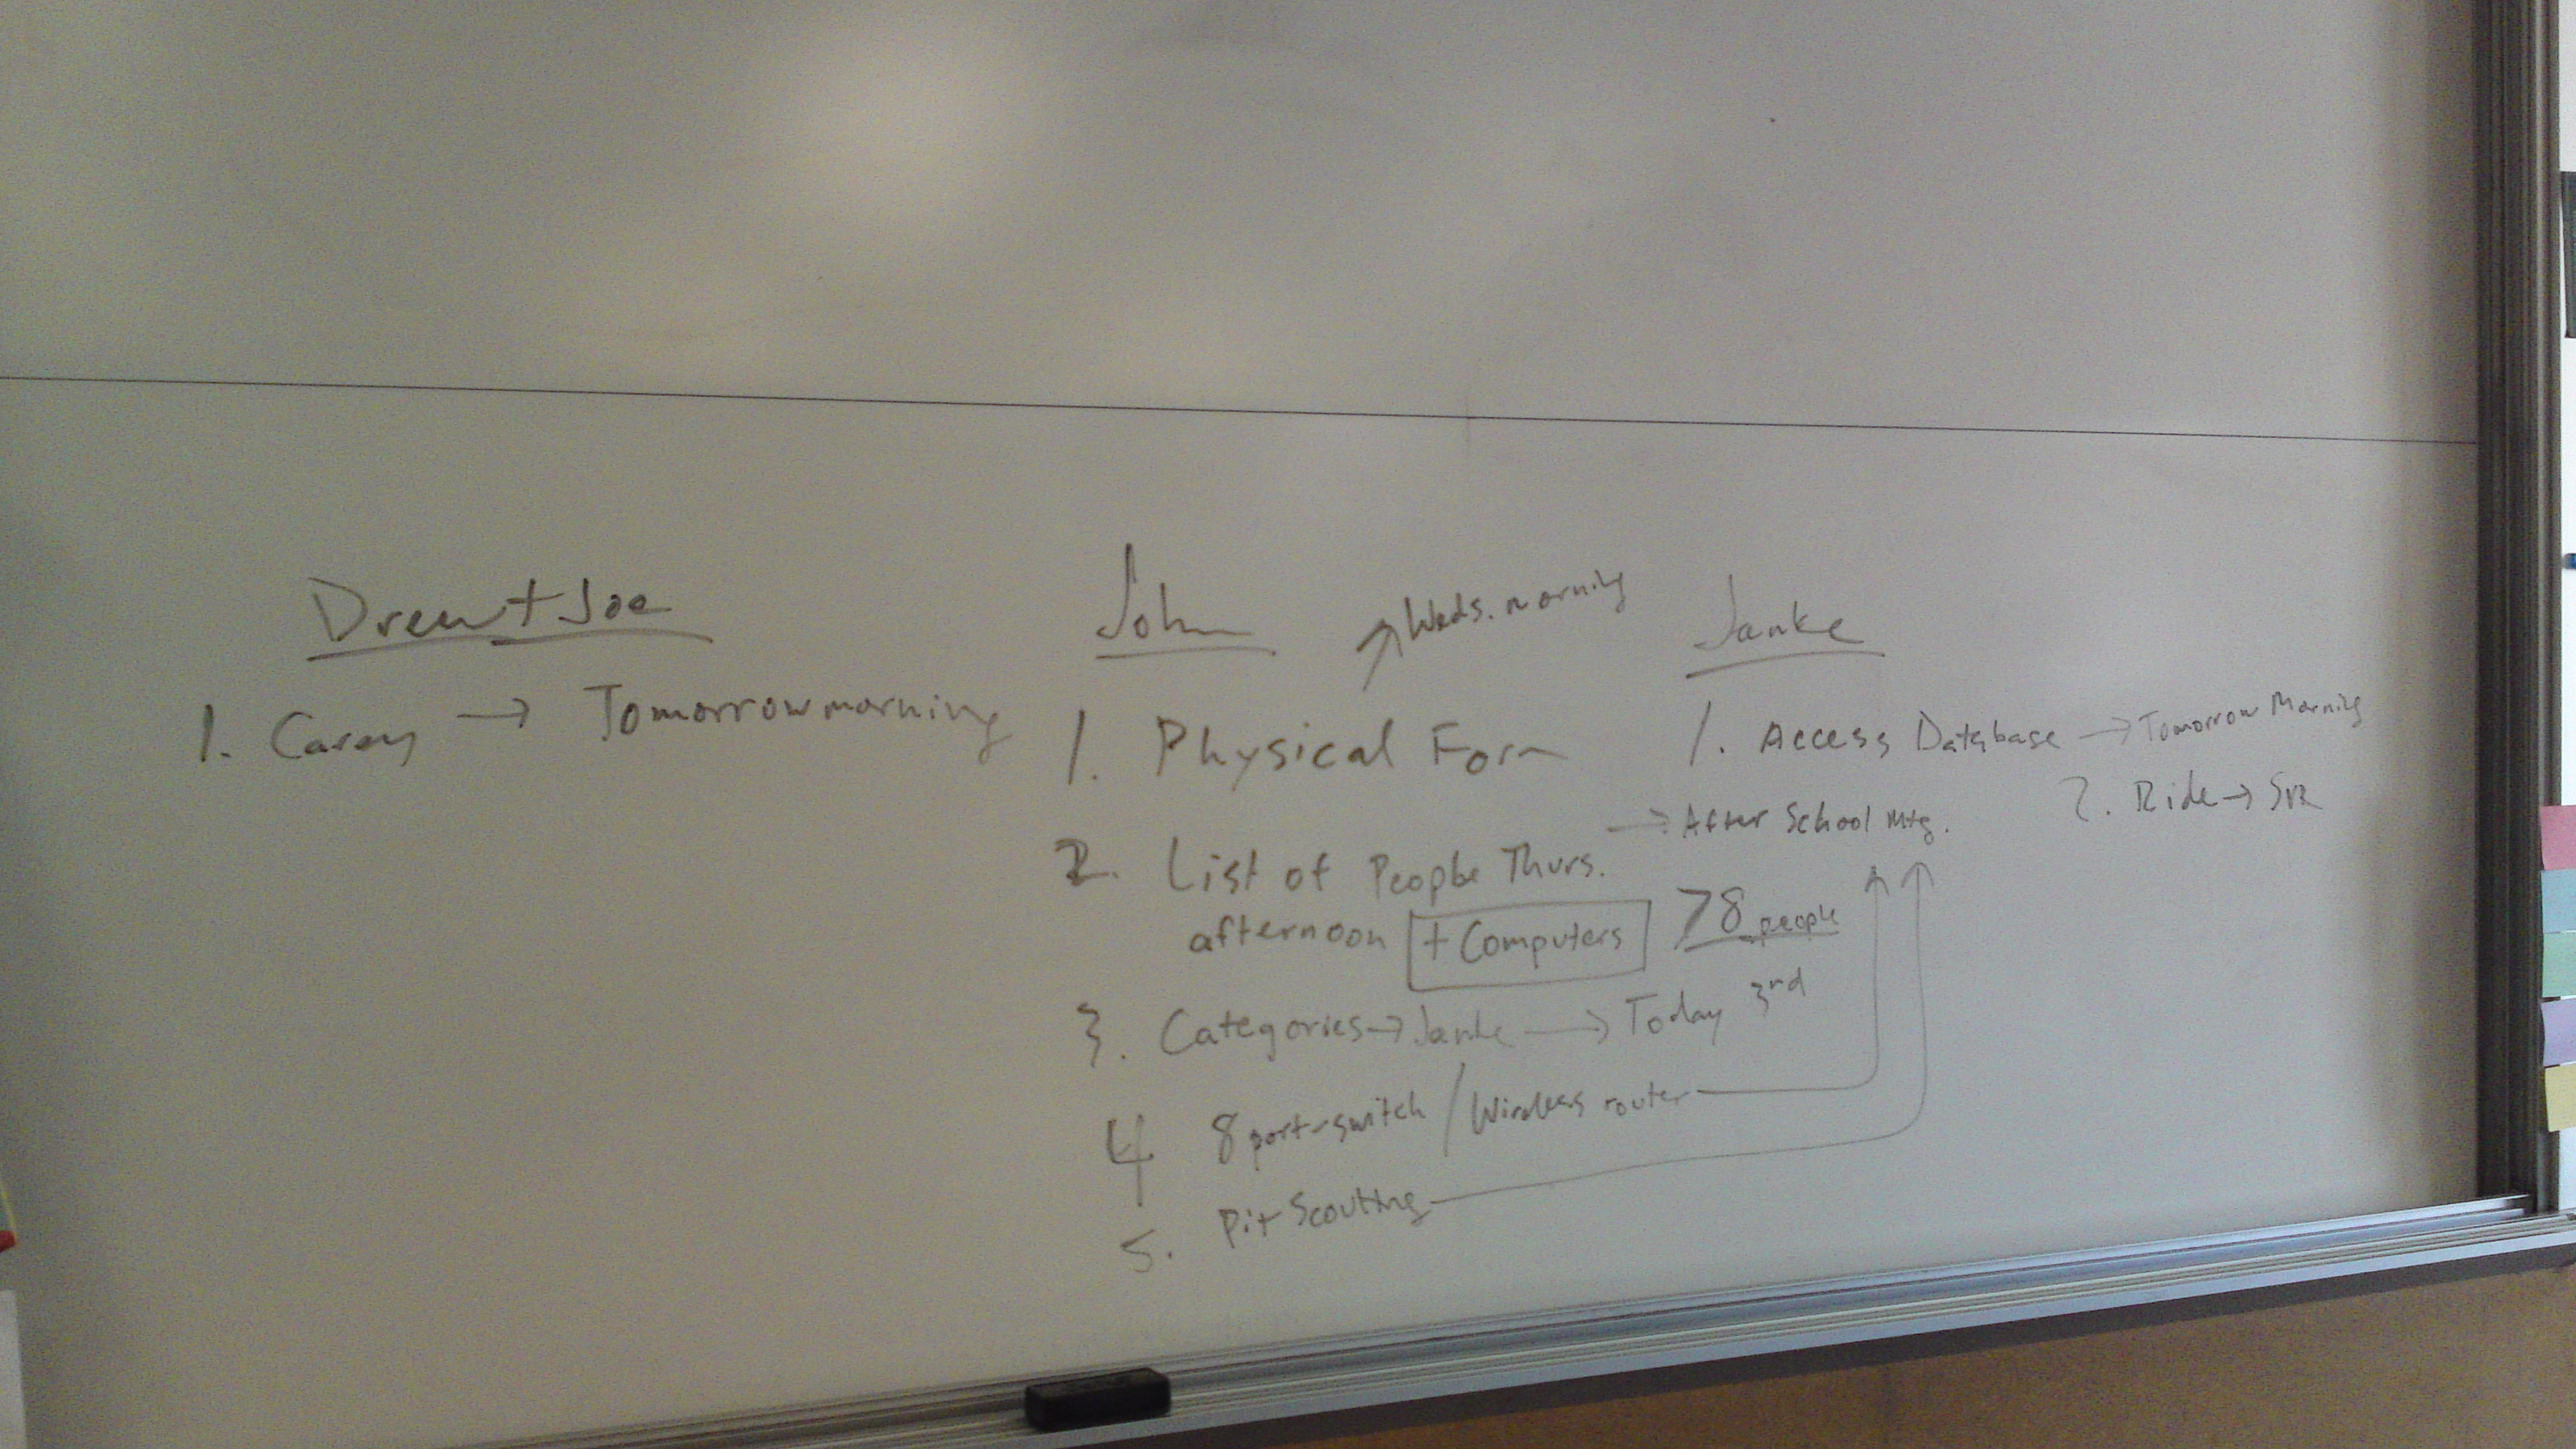 Drew + Joe
1. Casey → Tomorrow morning
John
→ Weds. morning
1. Physical Form
2. List of People Thurs. → After School Mtg.
afternoon + Computers >8 people
3. Categories → Janke → Today 3rd
4 8 port-switch / Wireless router
5. Pit Scouting
Janke
1. Access Database → Tomorrow Morning
2. Ride →